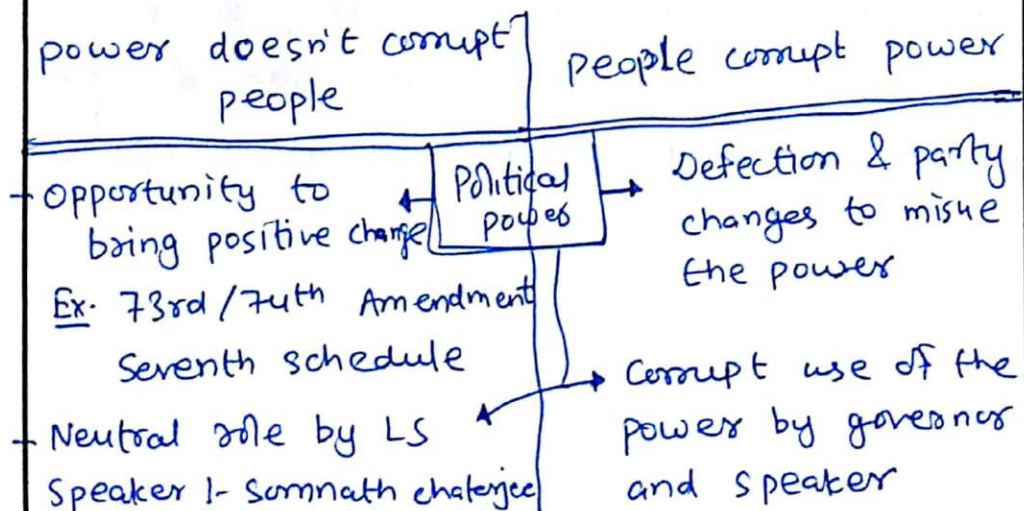 power doesn't corrupt
people
people corrupt power
Political
power
- Opportunity to
bring positive change
Ex. 73rd / 74th Amendment
Seventh schedule
- Neutral role by LS
Speaker :- Somnath chaterjee
Defection & party
changes to misue
the power
Corrupt use of the
power by governor
and speaker